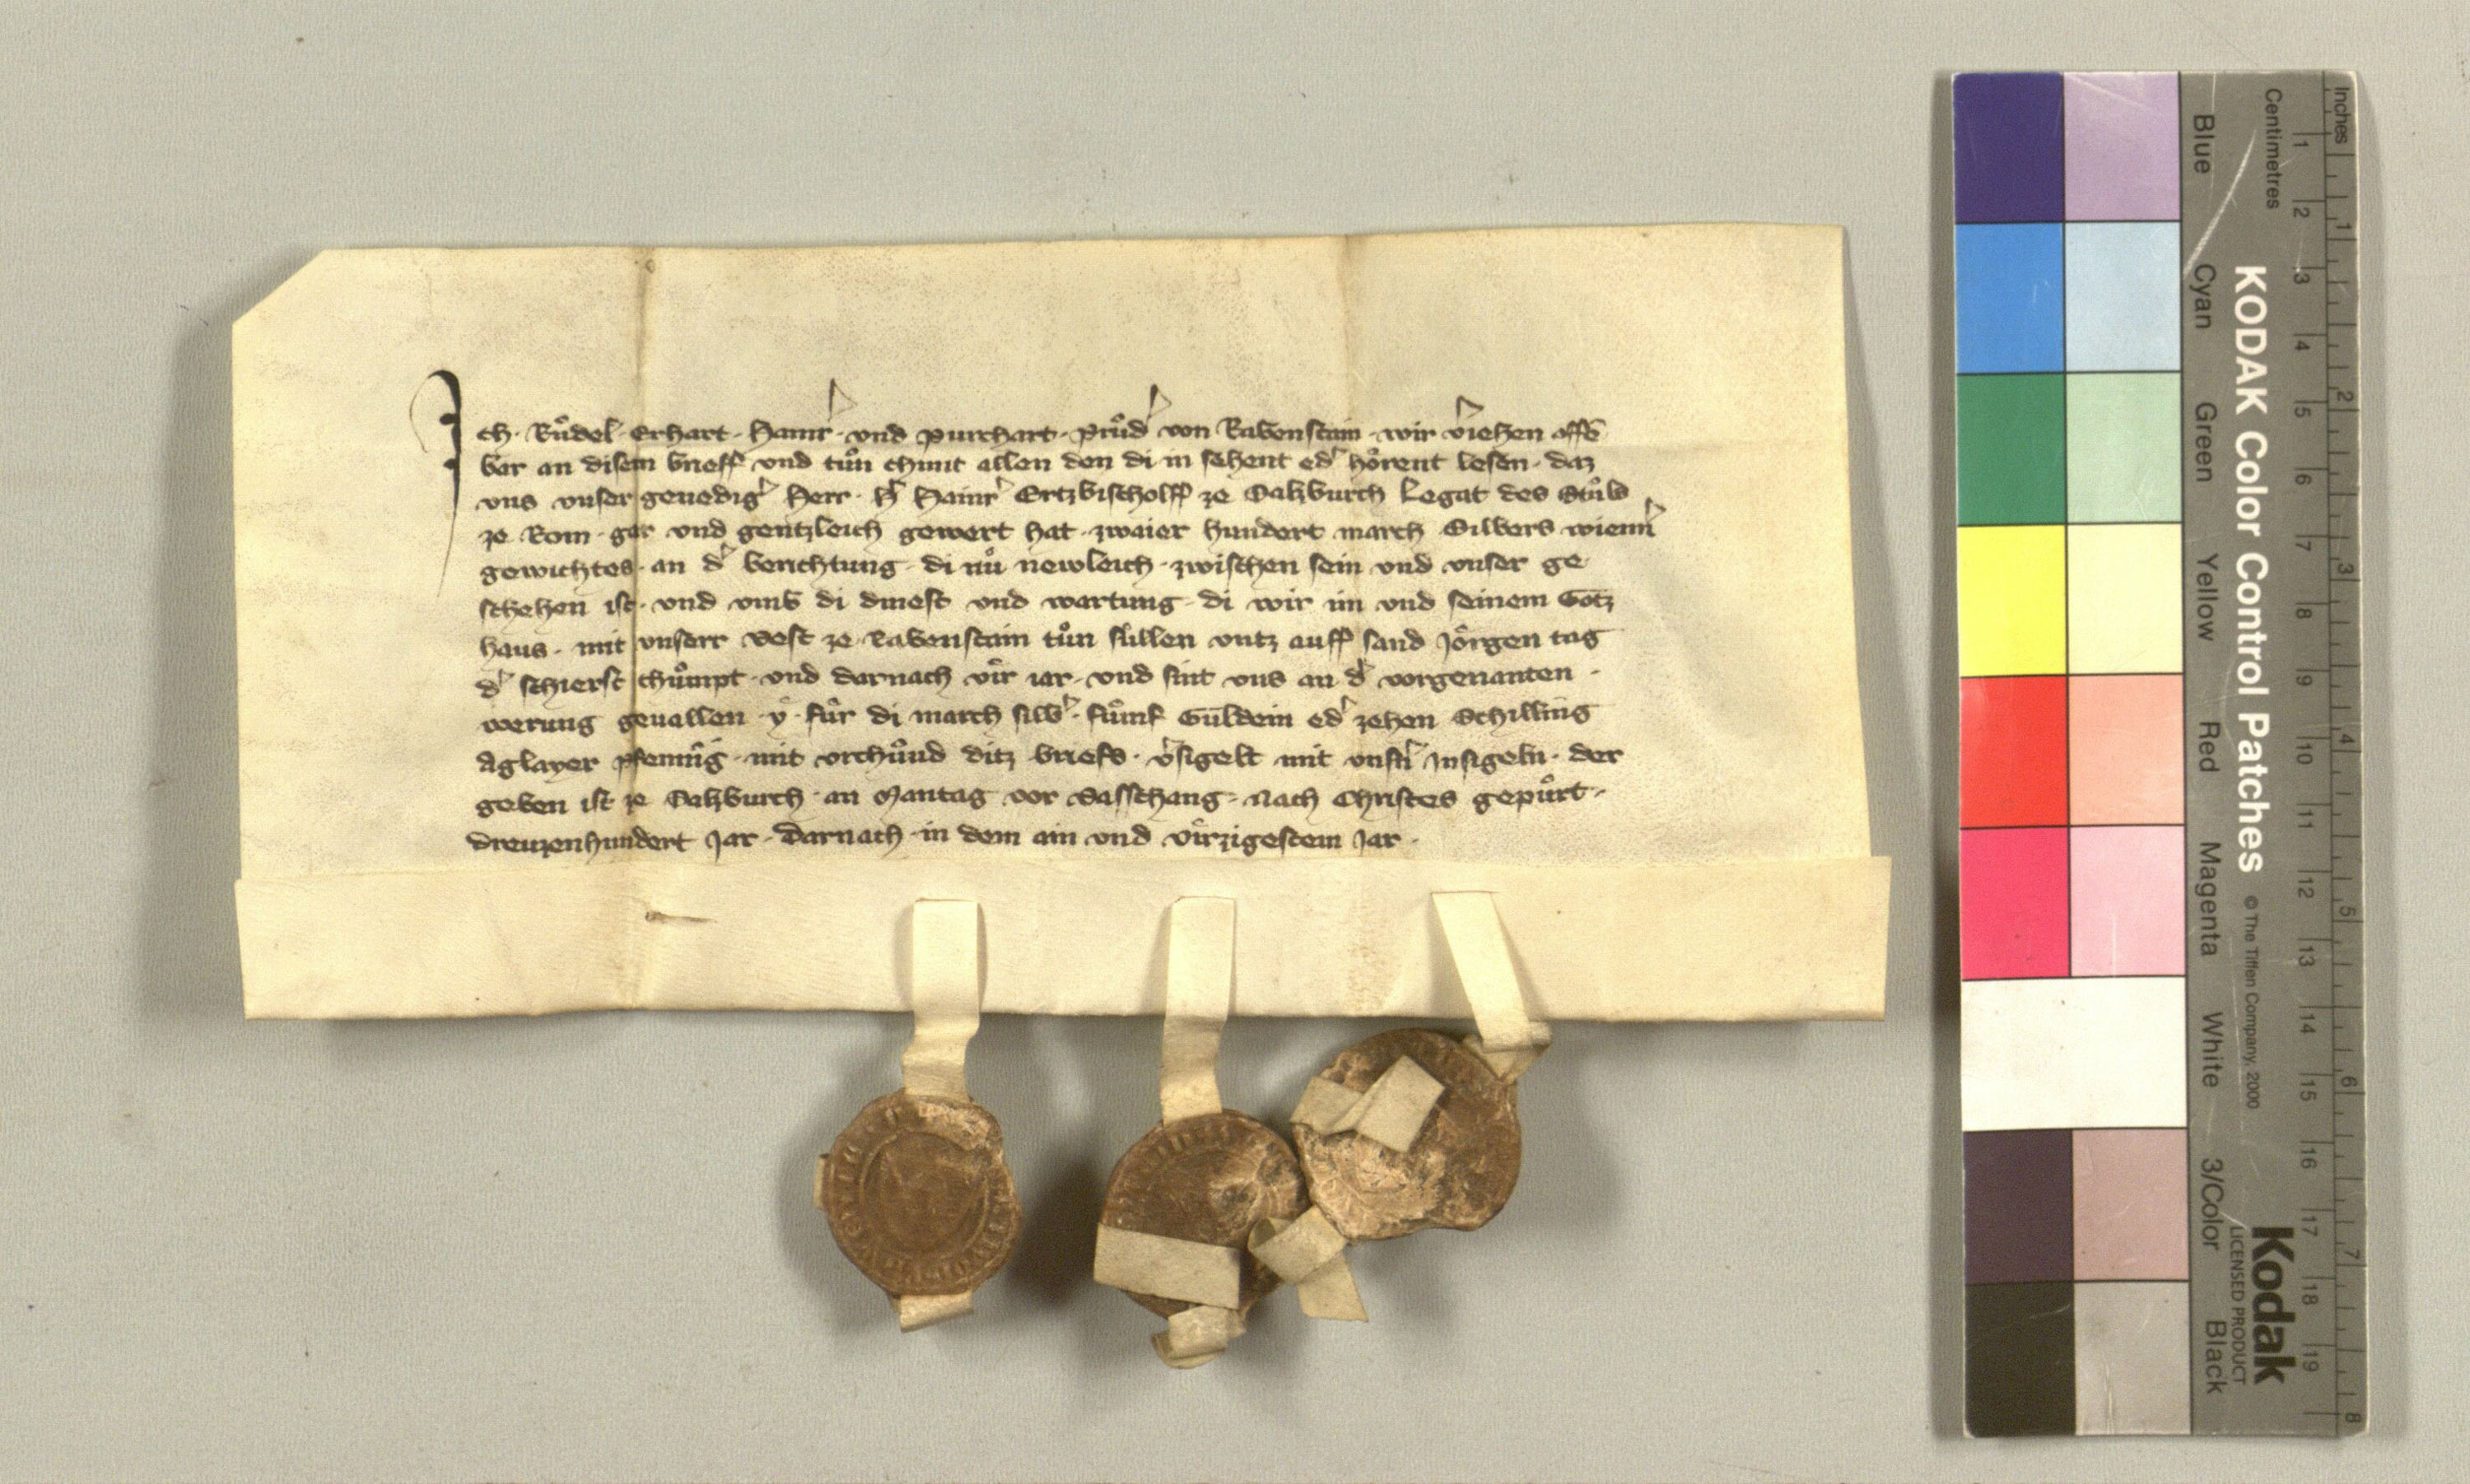 Ich · Ruͦdel · Erhart · Hainr̄ · vnd Purchart · pruͤd̾ von Rabenstain · wir v̾iehen offē
bar an disem brieff vnd tuͦn chunt allen den di in sehent od̾ hoͤrent lesen · daz
vns vnser genedig̾ Herr · h̾ Hainr̾ Ertzbischolff ze Salzburch Legat des Stuͦls
ze Rom · gar vnd gentzleich gewert hat · zwaier hundert march Silbers wienn̾
gewichtes · an d̾ berichtung · di nuͦ newleich · zwischen sein vnd vnser ge
schehen ist · vnd vmb di dinest vnd wartung · di wir im vnd seinem Gotz
haus · mit vnserr vest ze Rabenstain tuͦn suͤllen vntz auff sand Joͤrgen tag
d̾ schierst chuͦmpt · vnd darnach vir iar · vnd sint vns an d̾ vorgenanten ·
werung geuallen · y · fuͤr di march silb̾ · fuͤnf Guldein od̾ zehen Schilling
Aglayer pfennig · mit vrchuͤnd ditz briefs · v̾sigelt mit vnsn̾ Insigeln · der
geben ist ze Salzburch · an Mantag vor Vasschang · nach Christes gepuͤrt ·
dreuzenhundert Jar · Darnach · in dem ain vnd virzigestem Jar ·
Inches
Centimetres
1 2 3 4 5 6 7 8 9 10 11 12 13 14 15 16 17 18 19
1 2 3 4 5 6 7 8
KODAK Color Control Patches
© The Tiffen Company, 2000
Kodak
LICENSED PRODUCT
Blue Cyan Green Yellow Red Magenta White 3/Color Black